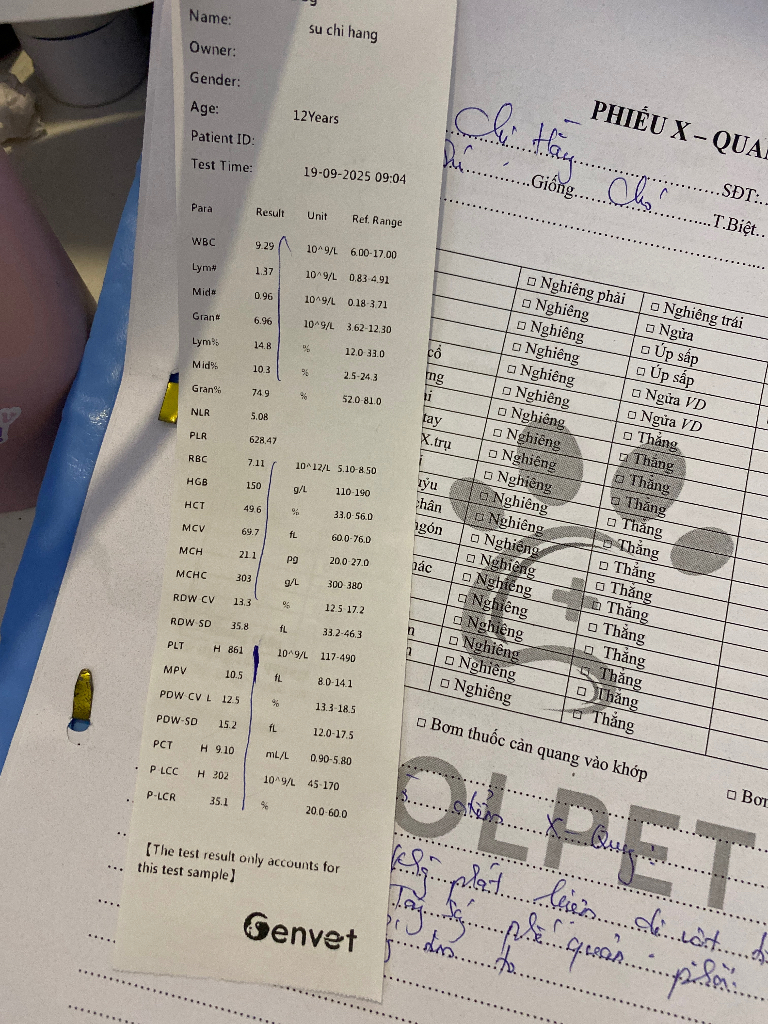 Name: su chi hang
Owner:
Gender:
Age: 12Years
Patient ID:
Test Time: 19-09-2025 09:04
Para Result Unit Ref. Range
WBC 9.29 10^9/L 6.00-17.00
Lym# 1.37 10^9/L 0.83-4.91
Mid# 0.96 10^9/L 0.18-3.71
Gran# 6.96 10^9/L 3.62-12.30
Lym% 14.8 % 12.0-33.0
Mid% 10.3 % 2.5-24.3
Gran% 74.9 % 52.0-81.0
NLR 5.08
PLR 628.47
RBC 7.11 10^12/L 5.10-8.50
HGB 150 g/L 110-190
HCT 49.6 % 33.0-56.0
MCV 69.7 fL 60.0-76.0
MCH 21.1 pg 20.0-27.0
MCHC 303 g/L 300-380
RDW-CV 13.3 % 12.5-17.2
RDW-SD 35.8 fL 33.2-46.3
PLT H 861 10^9/L 117-490
MPV 10.5 fL 8.0-14.1
PDW-CV L 12.5 % 13.3-18.5
PDW-SD 15.2 fL 12.0-17.5
PCT H 9.10 mL/L 0.90-5.80
P-LCC H 302 10^9/L 45-170
P-LCR 35.1 % 20.0-60.0
【The test result only accounts for
this test sample】
Genvet
PHIẾU X – QUA
Chị Hằng SĐT:
Giống Chó T.Biệt
□ Nghiêng phải □ Nghiêng trái
□ Nghiêng □ Ngửa
□ Nghiêng □ Úp sấp
cổ □ Nghiêng □ Úp sấp
ng □ Nghiêng □ Ngửa VD
□ Nghiêng □ Ngửa VD
tay □ Nghiêng □ Thẳng
X.trụ □ Nghiêng □ Thẳng
□ Nghiêng □ Thẳng
□ Nghiêng □ Thẳng
chân □ Nghiêng □ Thẳng
ngón □ Nghiêng □ Thẳng
□ Nghiêng □ Thẳng
□ Nghiêng □ Thẳng
□ Nghiêng □ Thẳng
□ Nghiêng □ Thẳng
□ Nghiêng □ Thẳng
□ Nghiêng □ Thẳng
□ Nghiêng □ Thẳng
□ Bơm thuốc cản quang vào khớp □ Bơm
OLPET
điểm X-Quy:
phát hiện dị vật
phế quản phổi
to